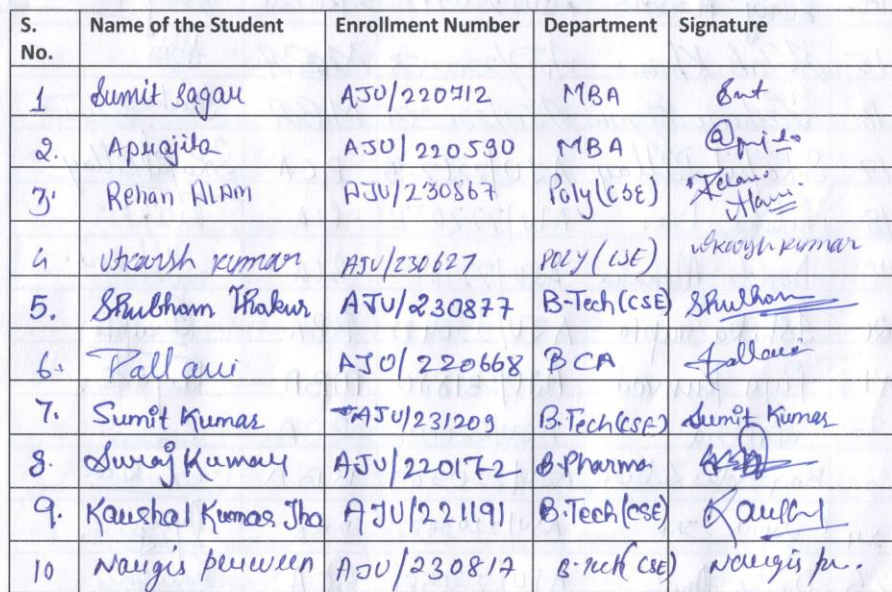 S. No. Name of the Student Enrollment Number Department Signature
1 Sumit Sagar AJU/220712 MBA
2. Aprajita AJU/220590 MBA
3. Rehan ALAM AJU/230867 Poly(CSE)
4 Utkarsh kumar AJU/230627 POLY(CSE) Utkarsh kumar
5. Shubham Thakur AJU/230877 B-Tech(CSE) Shubham
6. Pallavi AJU/220668 BCA Pallavi
7. Sumit Kumar AJU/231209 B.Tech(CSE) Sumit Kumar
8. Suraj Kumar AJU/220172 B.Pharma
9. Kaushal Kumar Jha AJU/221191 B.Tech(CSE) Kaushal
10 Nargis perween AJU/230817 B.Tech(CSE) Nargis